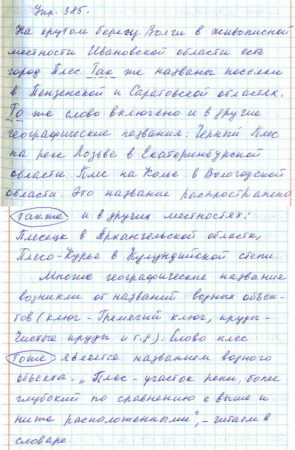 Упр. 385.
На крутом берегу Волги в живописной
местности Ивановской области есть
город Плес. Так же названы поселки
в Пензенской и Саратовской областях.
То же слово включено и в другие
географические названия: Черный Плес
на реке Лозьве в Екатеринбургской
области, Плес на Колье в Вологодской
области. Это название распространено
также и в других местностях:
Плесецк в Архангельской области,
Плесо-Курье в Кулундийской степи.
Многие географические названия
возникли от названий водных объек-
тов (ключ - Гремячий ключ, пруды-
Чистые пруды и т.д.). Слово плес
тоже является названием водного
объекта. „Плес - участок реки, более
глубокий по сравнению с выше и
ниже расположенными", - читаем в
словаре.